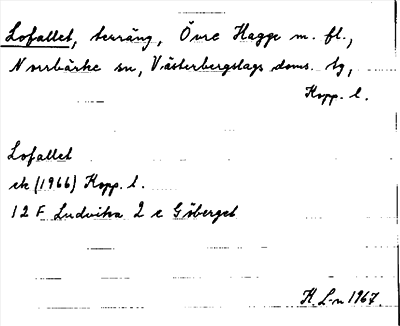 Lofallet, terräng, Övre Hagge m. fl.,
Norrbärke sn, Västerbergslags doms. tg,
Kopp. l.
Lofallet
ek (1966) Kopp. l.
12 F Ludvika 2 e Gåberget
H. L-n 1967.